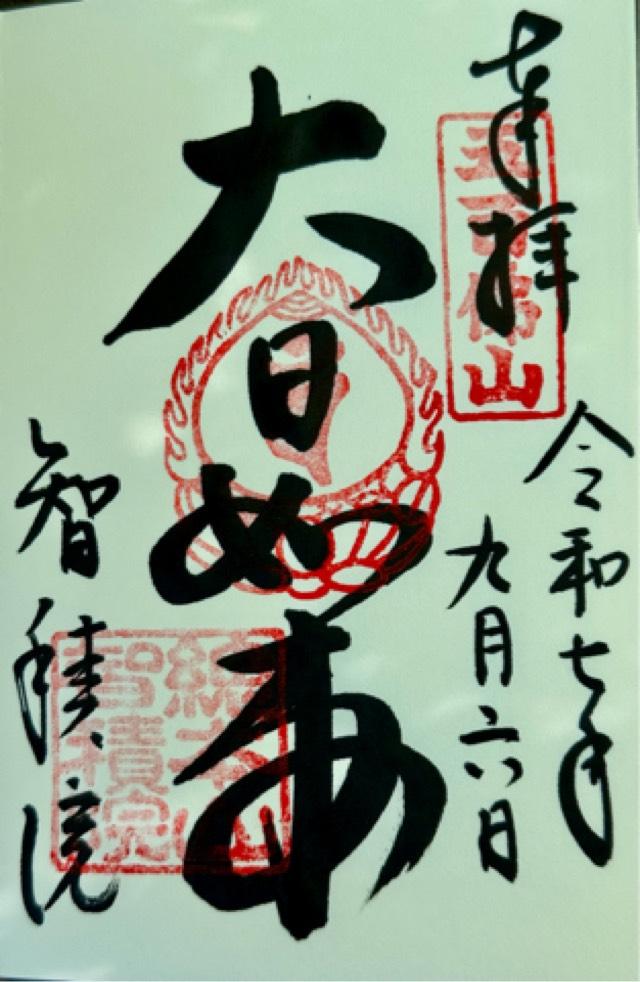 奉拝
五百佛山
令和七年
九月六日
大日如来
総本山
智積院
智積院